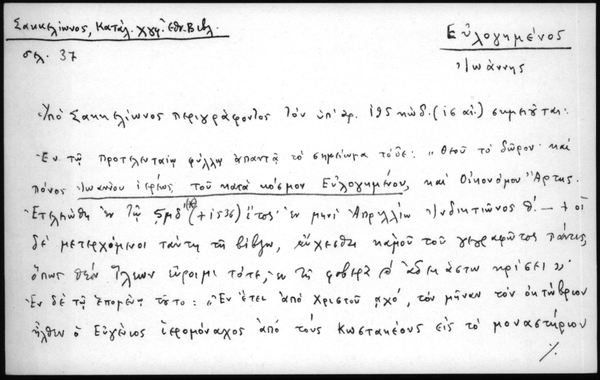 Σακκελίωνος, Κατάλ. χγφ. Ἐθν. Βιβλ.
σελ. 37
Εὐλογημένος
Ἰωάννης
Ὑπὸ Σακκελίωνος περιγράφοντος τὸν ὑπ' ἀρ. 195 κώδ. (ις αἰ.) σημειοῦται:
Ἐν τῷ προτελευταίῳ φύλλῳ ἀπαντᾷ τὸ σημείωμα τόδε: „Θεοῦ τὸ δῶρον· καὶ
πόνος Ἰωάννου ἱερέως, τοῦ κατὰ κόσμον Εὐλογημένου, καὶ Οἰκονόμου Ἄρτης.
Ἐτελειώθη ἐν τῷ ζμδ (+1536) ἔτος· ἐν μηνὶ Ἀπριλλίῳ Ἰνδικτιῶνος θ. – + οἱ
δὲ μετερχόμενοι ταύτῃ τῇ βίβλῳ, εὔχεσθε κἀμοῦ τοῦ γεγραφῶτος πάντες,
ὅπως Θεὸν ἵλεων εὕροιμι τότε, ἐν τῇ φοβερᾷ ἀδεκάστῳ κρίσει"
Ἐν δὲ τῷ ἑπομένῳ τοῦτο: „Ἐν ἔτει ἀπὸ Χριστοῦ αχό, τὸν μῆναν τὸν ὀκτώβριον
ἦλθεν ὁ Εὐγένιος ἱερομόναχος ἀπὸ τοὺς Κωστακέους εἰς τὸ μοναστήριον
./.